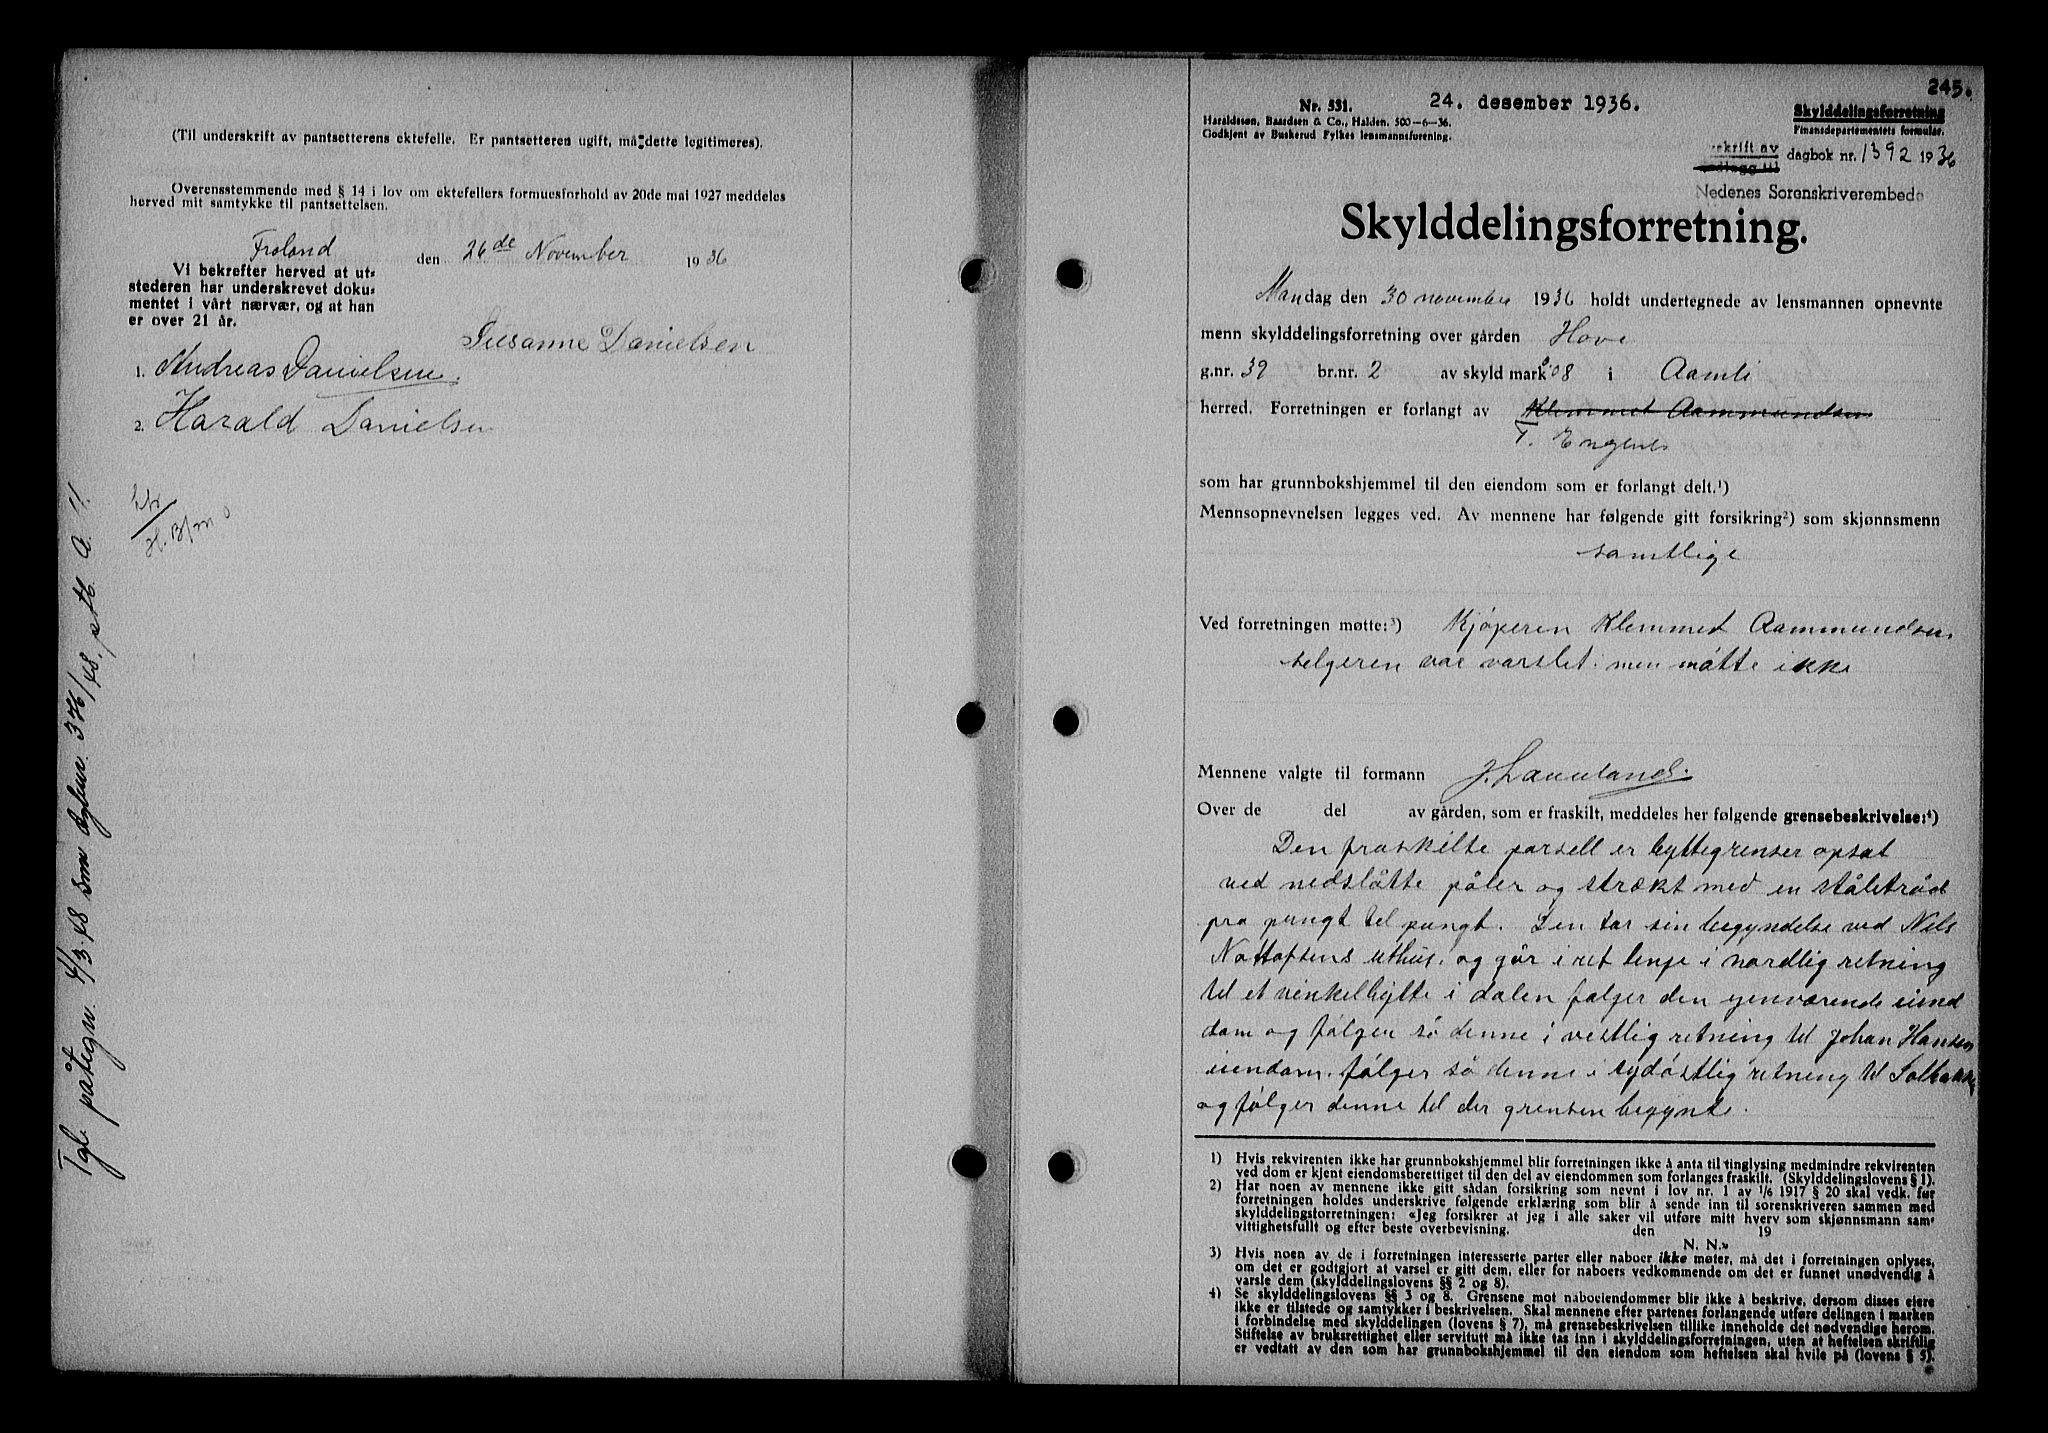 (Til underskrift av pantsetterens ektefelle. Er pantsetteren ugift, må dette legitimeres).
Overensstemmende med § 14 i lov om ektefellers formuesforhold av 20de mai 1927 meddeles
herved mit samtykke til pantsettelsen.
Froland den 26de November 1936
Vi bekrefter herved at ut-
stederen har underskrevet doku-
mentet i vårt nærvær, og at han
er over 21 år.
Susanne Danielsen
1. Andreas Danielsen.
2. Harald Danielsen
Tgl. påtegn. 4/3.48 smm dgbnr. 376/48.
245.
Nr. 531.
24. desember 1936.
Haraldssøn, Baardsen & Co., Halden. 500-6-36.
Godkjent av Buskerud Fylkes lensmannsforening.
Skylddelingsforretning
Finansdepartementets formular.
dagbok nr. 1392 1936
Nedenes Sorenskriverembede
Skylddelingsforretning.
Mandag den 30 november 1936 holdt undertegnede av lensmannen opnevnte
menn skylddelingsforretning over gården Hove
g.nr. 39 br.nr. 2 av skyld mark 0.08 i Aamli
herred. Forretningen er forlangt av Klemmet Aammundsen
T. Engenes
som har grunnbokshjemmel til den eiendom som er forlangt delt.¹)
Mennsopnevnelsen legges ved. Av mennene har følgende gitt forsikring²) som skjønnsmenn
samtlige
Ved forretningen møtte:³) Kjøperen Klemmet Aammundsen
selgeren var varslet men møtte ikke
Mennene valgte til formann
Over de del av gården, som er fraskilt, meddeles her følgende grensebeskrivelse:⁴)
Den fraskilte parsell er byttegrenser opsat
ved nedslåtte påler og strækt med en ståletråd
fra pungt til pungt. Den tar sin begyndelse ved Nels
uthus. og går i ret lenje i nordlig retning
til et vinkelbytte i dalen følger den genværende eiend
dom og følger så denne i vestlig retning til Johan Hansen
eiendom. følger så denne i sydøstlig retning til Solbakke
og følger denne til der grensen begynte.
1) Hvis rekvirenten ikke har grunnbokshjemmel blir forretningen ikke å anta til tinglysing medmindre rekvirenten
ved dom er kjent eiendomsberettiget til den del av eiendommen som forlanges fraskilt. (Skylddelingslovens § 1).
2) Har noen av mennene ikke gitt sådan forsikring som nevnt i lov nr. 1 av 1/6 1917 § 20 skal vedk. før
forretningen holdes underskrive følgende erklæring som blir å sende inn til sorenskriveren sammen med
skylddelingsforretningen: «Jeg forsikrer at jeg i alle saker vil utføre mitt hverv som skjønnsmann sam-
vittighetsfullt og efter beste overbevisning. den 19
N. N.»
3) Hvis noen av de i forretningen interesserte parter eller naboer ikke møter, må det i forretningen oplyses,
om det er godtgjort at varsel er gitt dem, eller for naboers vedkommende om det er funnet unødvendig å
varsle dem (skylddelingslovens §§ 2 og 8).
4) Se skylddelingslovens §§ 3 og 8. Grensene mot naboeiendommer blir ikke å beskrive, dersom disses eiere
ikke er tilstede og samtykker i beskrivelsen. Skal mennene efter partenes forlangende utføre delingen i marken
i forbindelse med skylddelingen (lovens § 7), må grensebeskrivelsen tillike inneholde det nødvendige herom.
Stiftelse av bruksrettighet eller servitutt må ikke tas inn i skylddelingsforretningen, uten at heftelsen skriftlig
er vedtatt av den som har grunnbokshjemmel til den eiendom som heftelsen skal hvile på (lovens § 5).